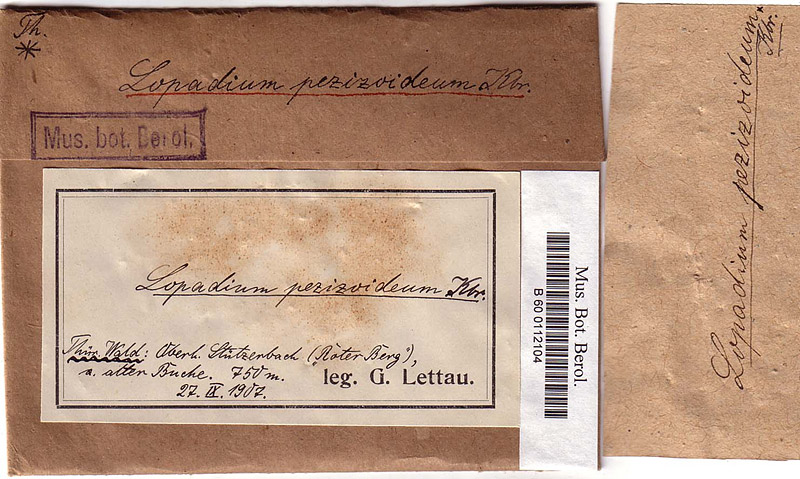 Th.
*
Lopadium pezizoideum Kbr.
Mus. bot. Berol.
Lopadium pezizoideum Kbr.
Thür. Wald: Oberh. Stützerbach ("Roter Berg"),
a. alter Buche. 750 m.
leg. G. Lettau.
27. IX. 1907.
Mus. Bot. Berol.
B 60 0112104
Lopadium pezizoideum
Kbr.